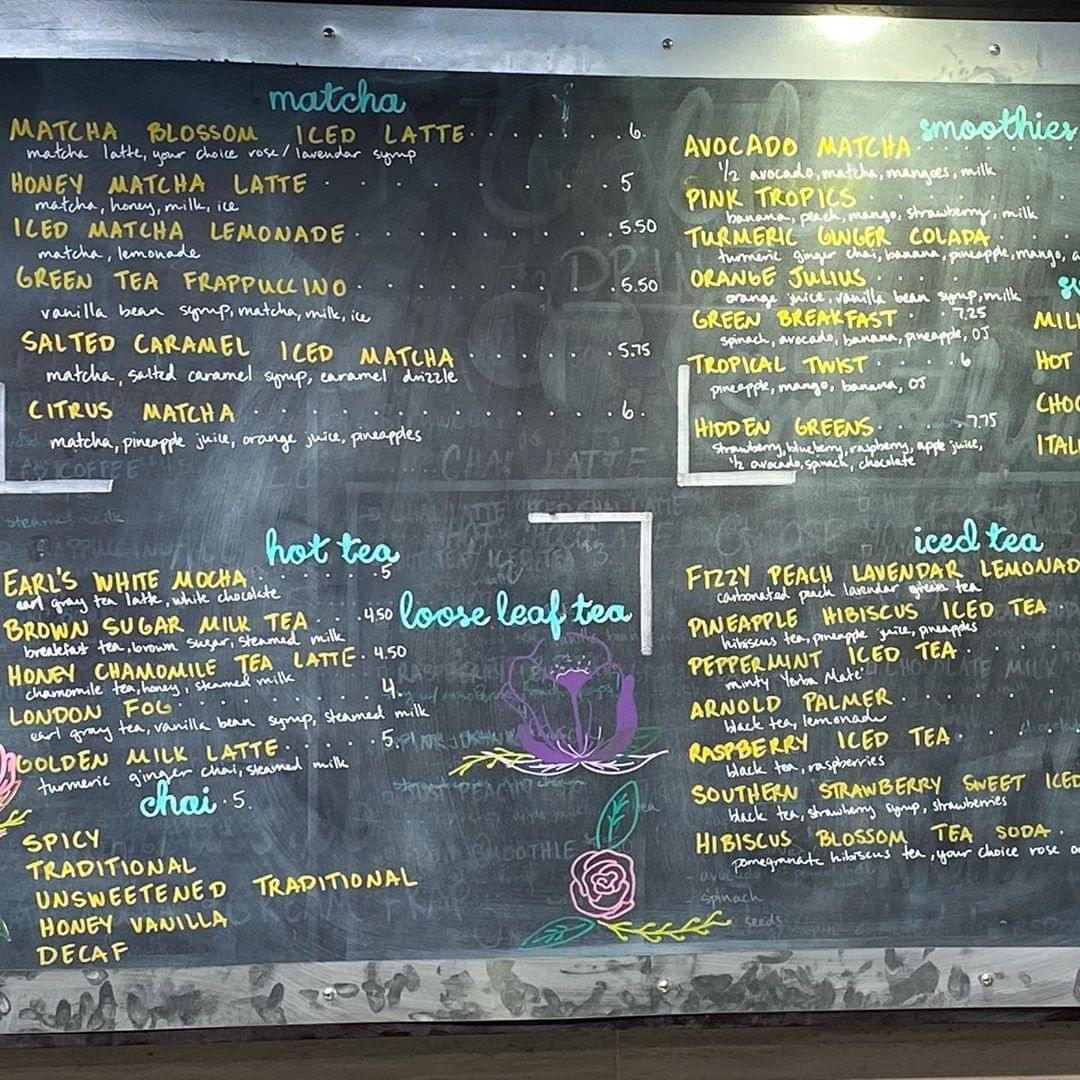 matcha
MATCHA BLOSSOM ICED LATTE . . . . . . . . 6.
matcha latte, your choice rose/lavendar syrup
HONEY MATCHA LATTE . . . . . . . . . . . 5
matcha, honey, milk, ice
ICED MATCHA LEMONADE . . . . . . . . . . 5.50
matcha, lemonade
GREEN TEA FRAPPUCCINO . . . . . . . . . . 5.50
vanilla bean syrup, matcha, milk, ice
SALTED CARAMEL ICED MATCHA . . . . . . . 5.75
matcha, salted caramel syrup, caramel drizzle
CITRUS MATCHA . . . . . . . . . . . . . 6.
matcha, pineapple juice, orange juice, pineapples
hot tea
EARL'S WHITE MOCHA . . . . . . 5
earl gray tea latte, white chocolate
BROWN SUGAR MILK TEA . . . 4.50
breakfast tea, brown sugar, steamed milk
HONEY CHAMOMILE TEA LATTE . 4.50
chamomile tea, honey, steamed milk
LONDON FOG . . . . . . . . . . 4.
earl gray tea, vanilla bean syrup, steamed milk
GOLDEN MILK LATTE . . . . . . 5.
turmeric ginger chai, steamed milk
chai . 5.
SPICY
TRADITIONAL
UNSWEETENED TRADITIONAL
HONEY VANILLA
DECAF
loose leaf tea
smoothies
AVOCADO MATCHA
1/2 avocado, matcha, mangoes, milk
PINK TROPICS
banana, peach, mango, strawberry, milk
TURMERIC GINGER COLADA
turmeric ginger chai, banana, pineapple, mango, a
ORANGE JULIUS
orange juice, vanilla bean syrup, milk
GREEN BREAKFAST . . 7.25
spinach, avocado, banana, pineapple, OJ
TROPICAL TWIST . . . . . 6
pineapple, mango, banana, OJ
HIDDEN GREENS . . . . . 7.75
strawberry, blueberry, raspberry, apple juice,
1/2 avocado, spinack, chocolate
MIL
HOT
CHOC
ITAL
iced tea
FIZZY PEACH LAVENDAR LEMONAD
carbonated peach lavendar green tea
PINEAPPLE HIBISCUS ICED TEA
hibiscus tea, pineapple juice, pineapples
PEPPERMINT ICED TEA
minty Yerba Mate'
ARNOLD PALMER
black tea, lemonade
RASPBERRY ICED TEA
black tea, raspberries
SOUTHERN STRAWBERRY SWEET ICED
black tea, strawberry syrup, strawberries
HIBISCUS BLOSSOM TEA SODA
pomegranate hibiscus tea, your choice rose o